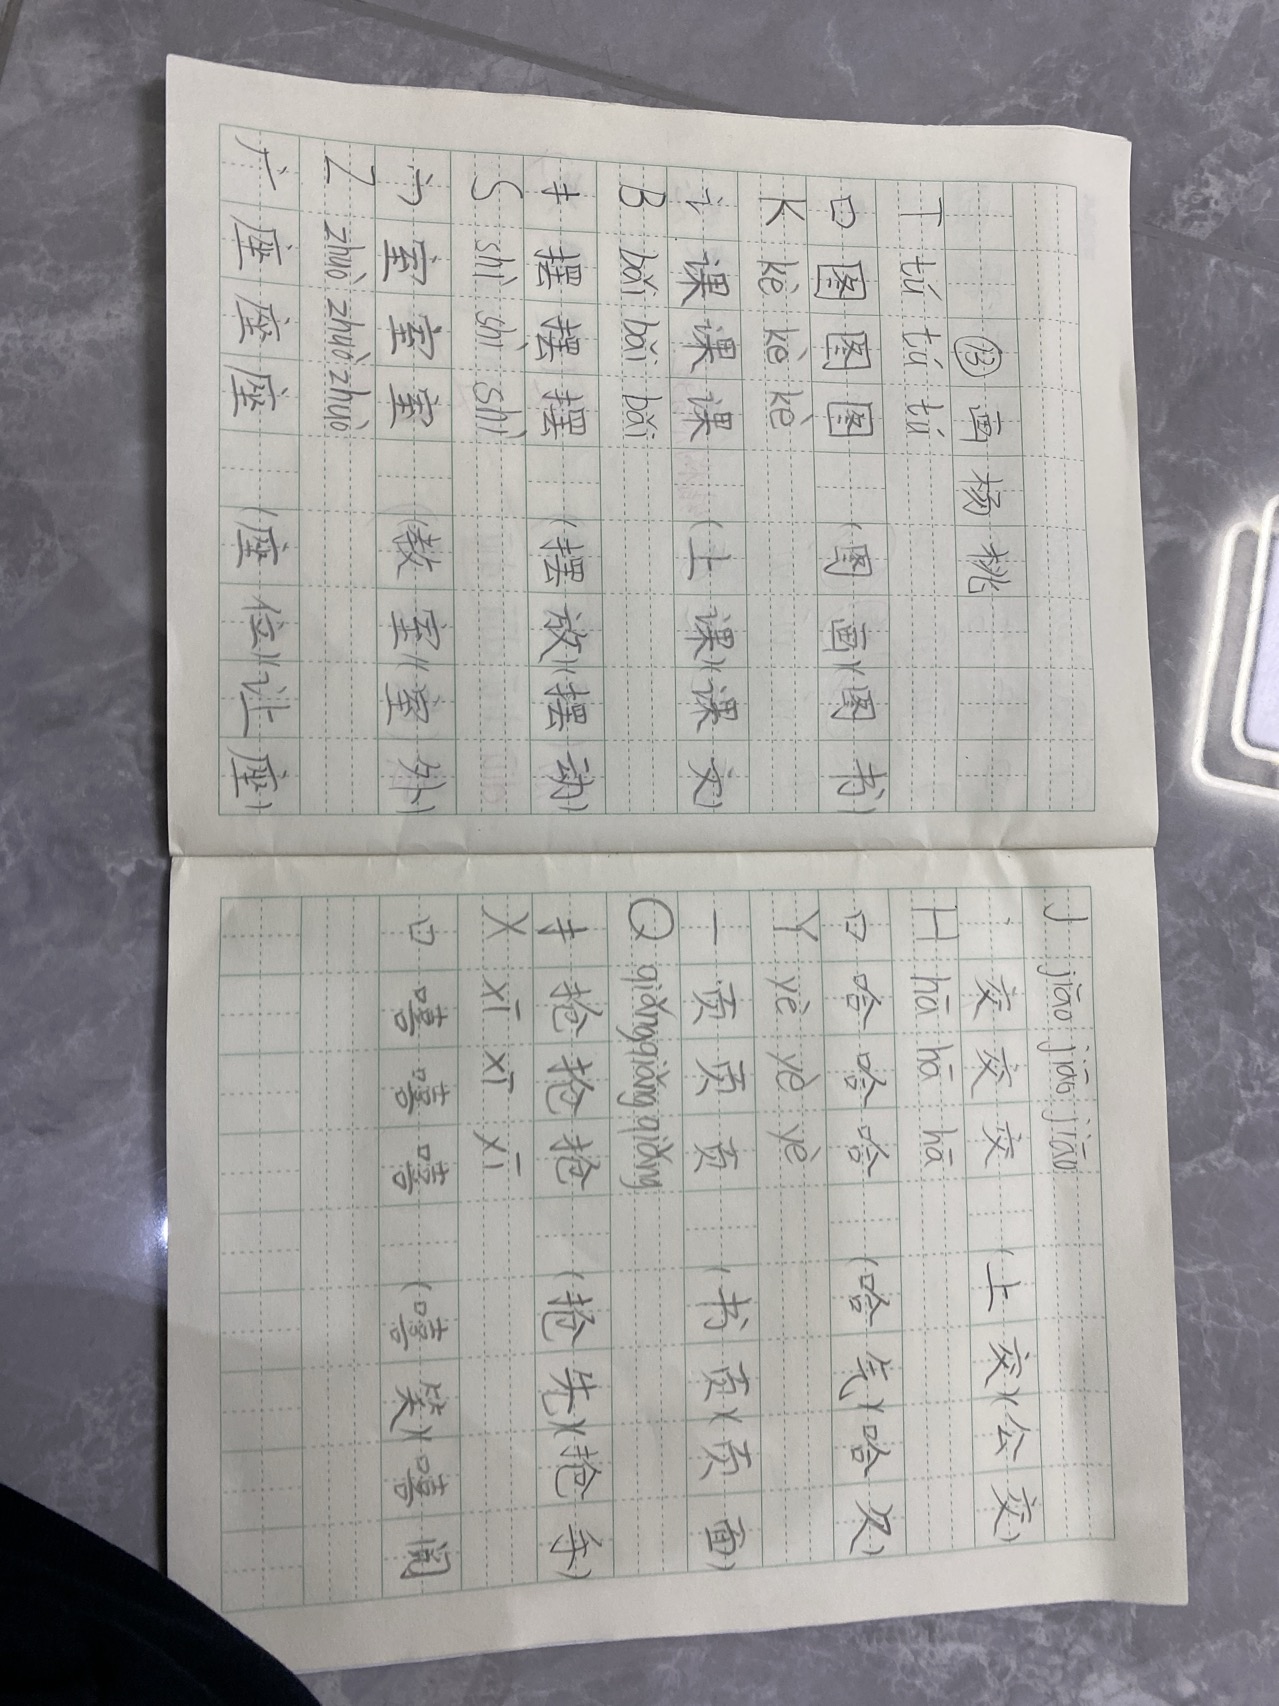 ⑬画杨桃
T tú tú tú
口 图 图 图 (图画)(图书)
K kè kè kè
讠 课 课 课 (上课)(课文)
B bǎi bǎi bǎi
扌 摆 摆 摆 (摆放)(摆动)
S shì shì shì
宀 室 室 室 (教室)(室外)
Z zhuò zhuò zhuò
广 座 座 座 (座位)(让座)
J jiāo jiāo jiāo
交 交 交 (上交)(公交)
H hā hā hā
口 哈 哈 哈 (哈气)(哈欠)
Y yè yè yè
一 页 页 页 (书页)(页面)
Q qiǎng qiǎng qiǎng
扌 抢 抢 抢 (抢先)(抢手)
X xī xī xī
口 嘻 嘻 嘻 (嘻笑)(嘻闹